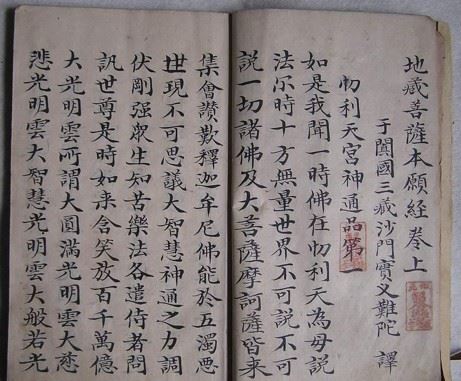 地藏菩薩本願經卷上
于闐國三藏沙門實叉難陀 譯
忉利天宮神通品第一
如是我聞一時佛在忉利天為母說
法尒時十方無量世界不可說不可
說一切諸佛及大菩薩摩訶薩皆来
集會讃歎釋迦牟尼佛能於五濁惡
世現不可思議大智慧神通之力調
伏剛强衆生知苦樂法各遣侍者問
訊世尊是時如来含笑放百千萬億
大光明雲所謂大圓滿光明雲大慈
悲光明雲大智慧光明雲大般若光